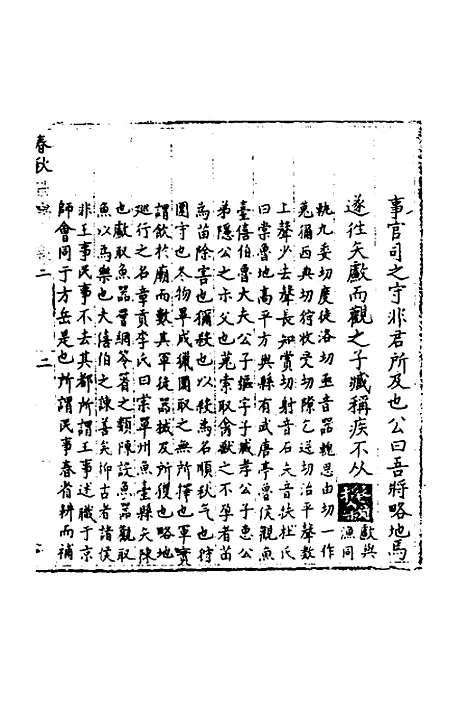 事官司之守非君所及也公曰吾將略地焉
遂往矢獻而觀之子臧稱疾不从
獻與
漁同
軌九委切度徒洛切亟音器輗思由切一作
蒐獮西典切狩收受切隙乞送切治平聲數
上聲少去聲長知賞切射音石夫音扶杜氏
曰棠魯地高平方與縣有武唐亭魯侯觀魚
臺僖伯魯大夫公子彄字子臧孝公子惠公
弟隱公之尗父也蒐索取禽獸之不孕者苗
為苗除害也獮殺也以殺為名順秋气也狩
圍守也冬物畢成獵圍取之無所擇也軍實
謂飲於廟而數其軍徒器械及所獲也略地
巡行之名章貢李氏曰棠單州魚臺縣矢陳
也獻取魚器罾網笭箵之類陳設魚器觀取
魚以為樂也大僖伯之諫善矣抑古者諸侯
非王事民事不去其都所謂王事述職于京
師會同于方岳是也所謂民事春省耕而補
春秋
二
二